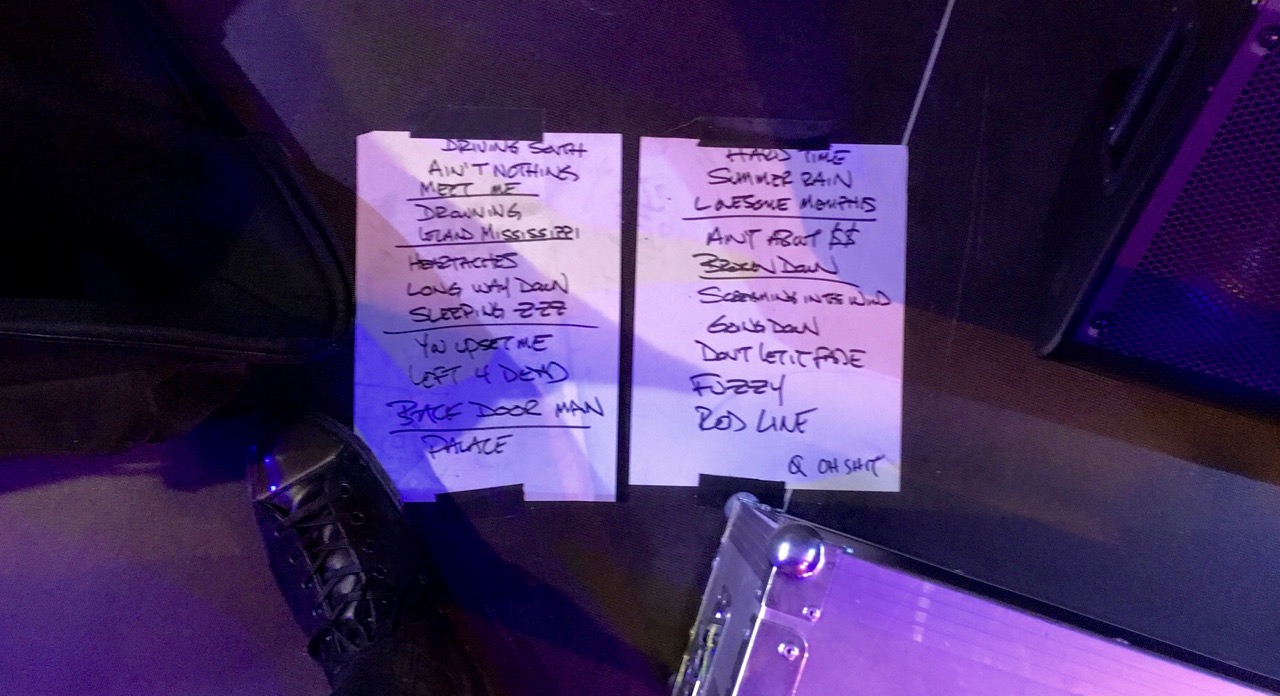 DRIVING SOUTH
AIN'T NOTHING
MEET ME
DROWNING
LELAND MISSISSIPPI
HEARTACHES
LONG WAY DOWN
SLEEPING ZZZ
YOU UPSET ME
LEFT 4 DEAD
BACK DOOR MAN
PALACE
HARD TIME
SUMMER RAIN
LONESOME MEMPHIS
AINT ABOUT $$
BROKEN DOWN
SCREAMING IN THE WIND
GOING DOWN
DONT LET IT FADE
FUZZY
ROD LINE
Q OH SHIT